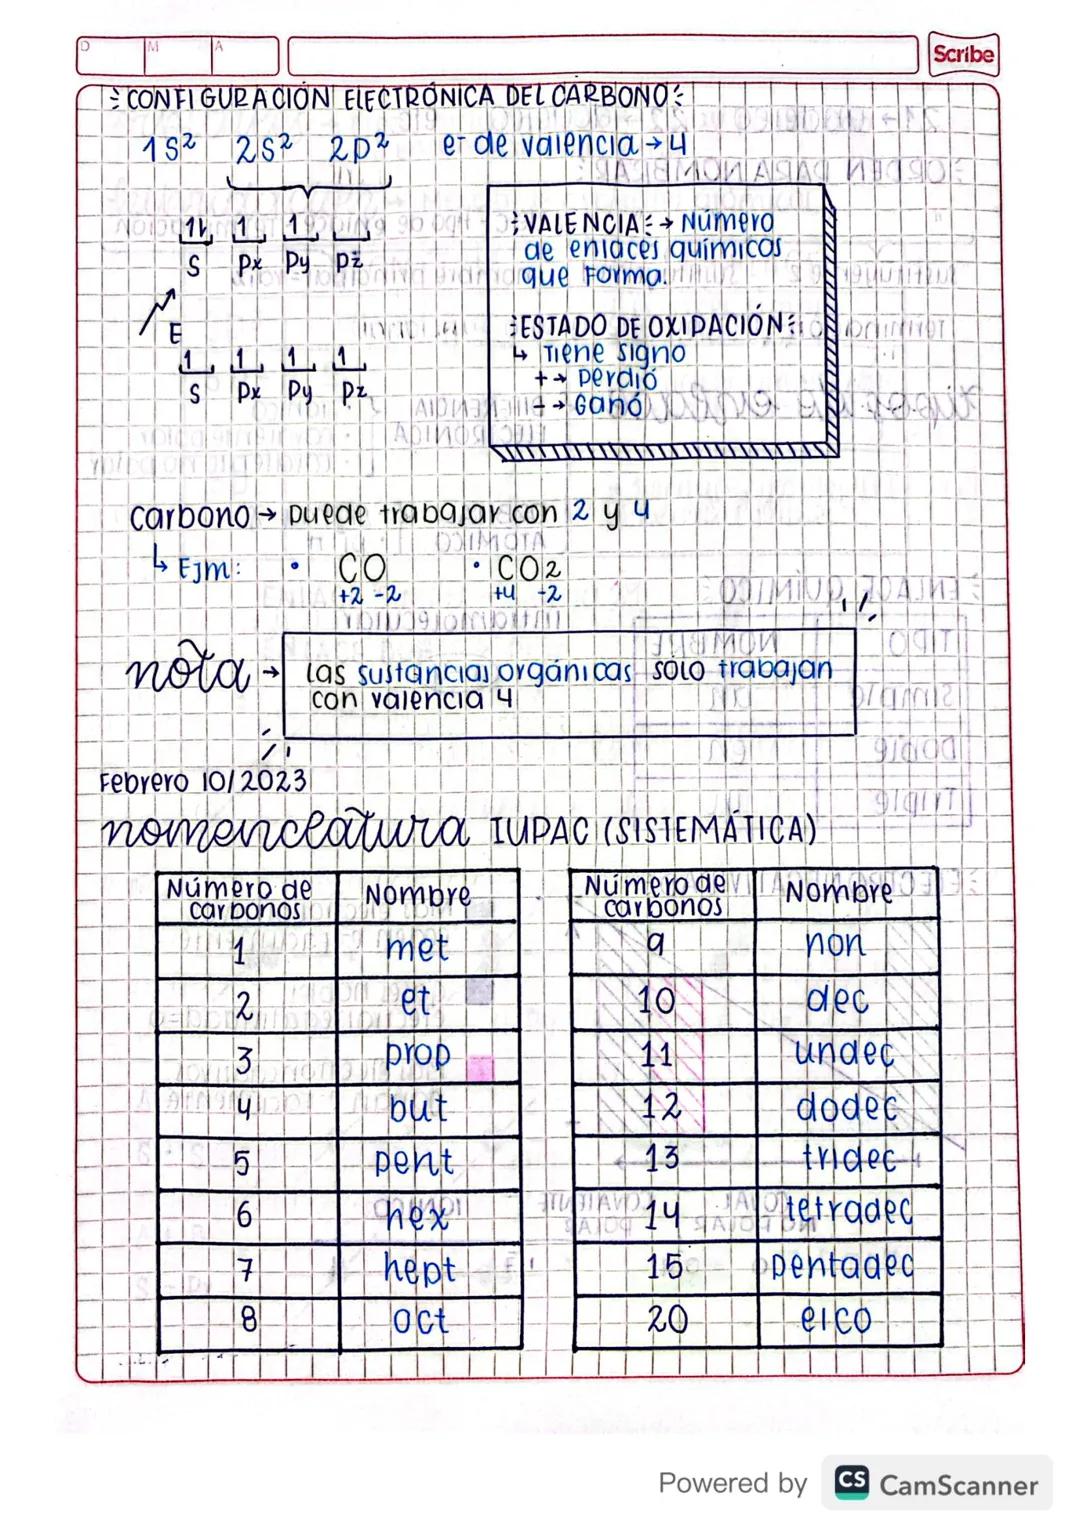 D M A
Scribe
CONFIGURACIÓN ELECTRÓNICA DEL CARBONO
1S² 2S² 2p² e- de valencia → 4
1 1 1
S Px Py Pz
E
1 1 1 1
S Px Py Pz
VALENCIA → Número
de enlaces químicos
que forma.
ESTADO DE OXIDACIÓN:
↳ Tiene signo
+ → perdió
- → Ganó
Carbono → puede trabajar con 2 y 4
↳ Ejm: • CO • CO2
+2 -2 +4 -2
nota → Las sustancias orgánicas solo trabajan
con valencia 4
Febrero 10/2023
nomenclatura IUPAC (SISTEMÁTICA)
Número de carbonos Nombre
1 met
2 et
3 prop
4 but
5 pent
6 hex
7 hept
8 oct
Número de carbonos Nombre
9 non
10 dec
11 undec
12 dodec
13 tridec
14 tetradec
15 pentadec
20 eico
Powered by CS CamScanner